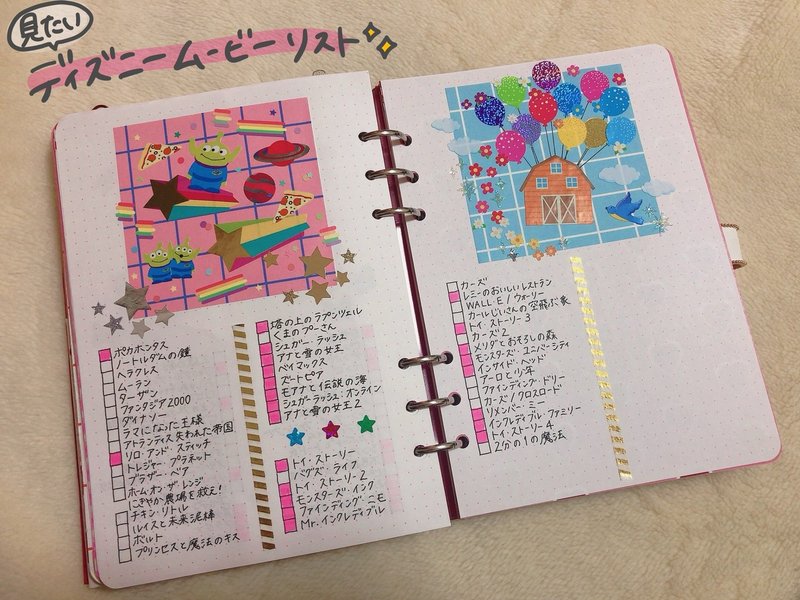 見たい
ディズニームービーリスト
ポカホンタス
ノートルダムの鐘
ヘラクレス
ムーラン
ターザン
ファンタジア2000
ダイナソー
ラマになった王様
アトランティス 失われた帝国
リロ・アンド・スティッチ
トレジャー・プラネット
ブラザー・ベア
ホーム・オン・ザ・レンジ
にぎやか農場を救え!
チキン・リトル
ルイスと未来泥棒
ボルト
プリンセスと魔法のキス
塔の上のラプンツェル
くまのプーさん
シュガー・ラッシュ
アナと雪の女王
ベイマックス
ズートピア
モアナと伝説の海
シュガーラッシュ:オンライン
アナと雪の女王2
トイ・ストーリー
バグズ・ライフ
トイ・ストーリー2
モンスターズ・インク
ファインディング・ニモ
Mr.インクレディブル
カーズ
レミーのおいしいレストラン
WALL・E/ウォーリー
カールじいさんの空飛ぶ家
トイ・ストーリー3
カーズ2
メリダとおそろしの森
モンスターズ・ユニバーシティ
インサイド・ヘッド
アーロと少年
ファインディング・ドリー
カーズ/クロスロード
リメンバー・ミー
インクレディブル・ファミリー
トイ・ストーリー4
2分の1の魔法